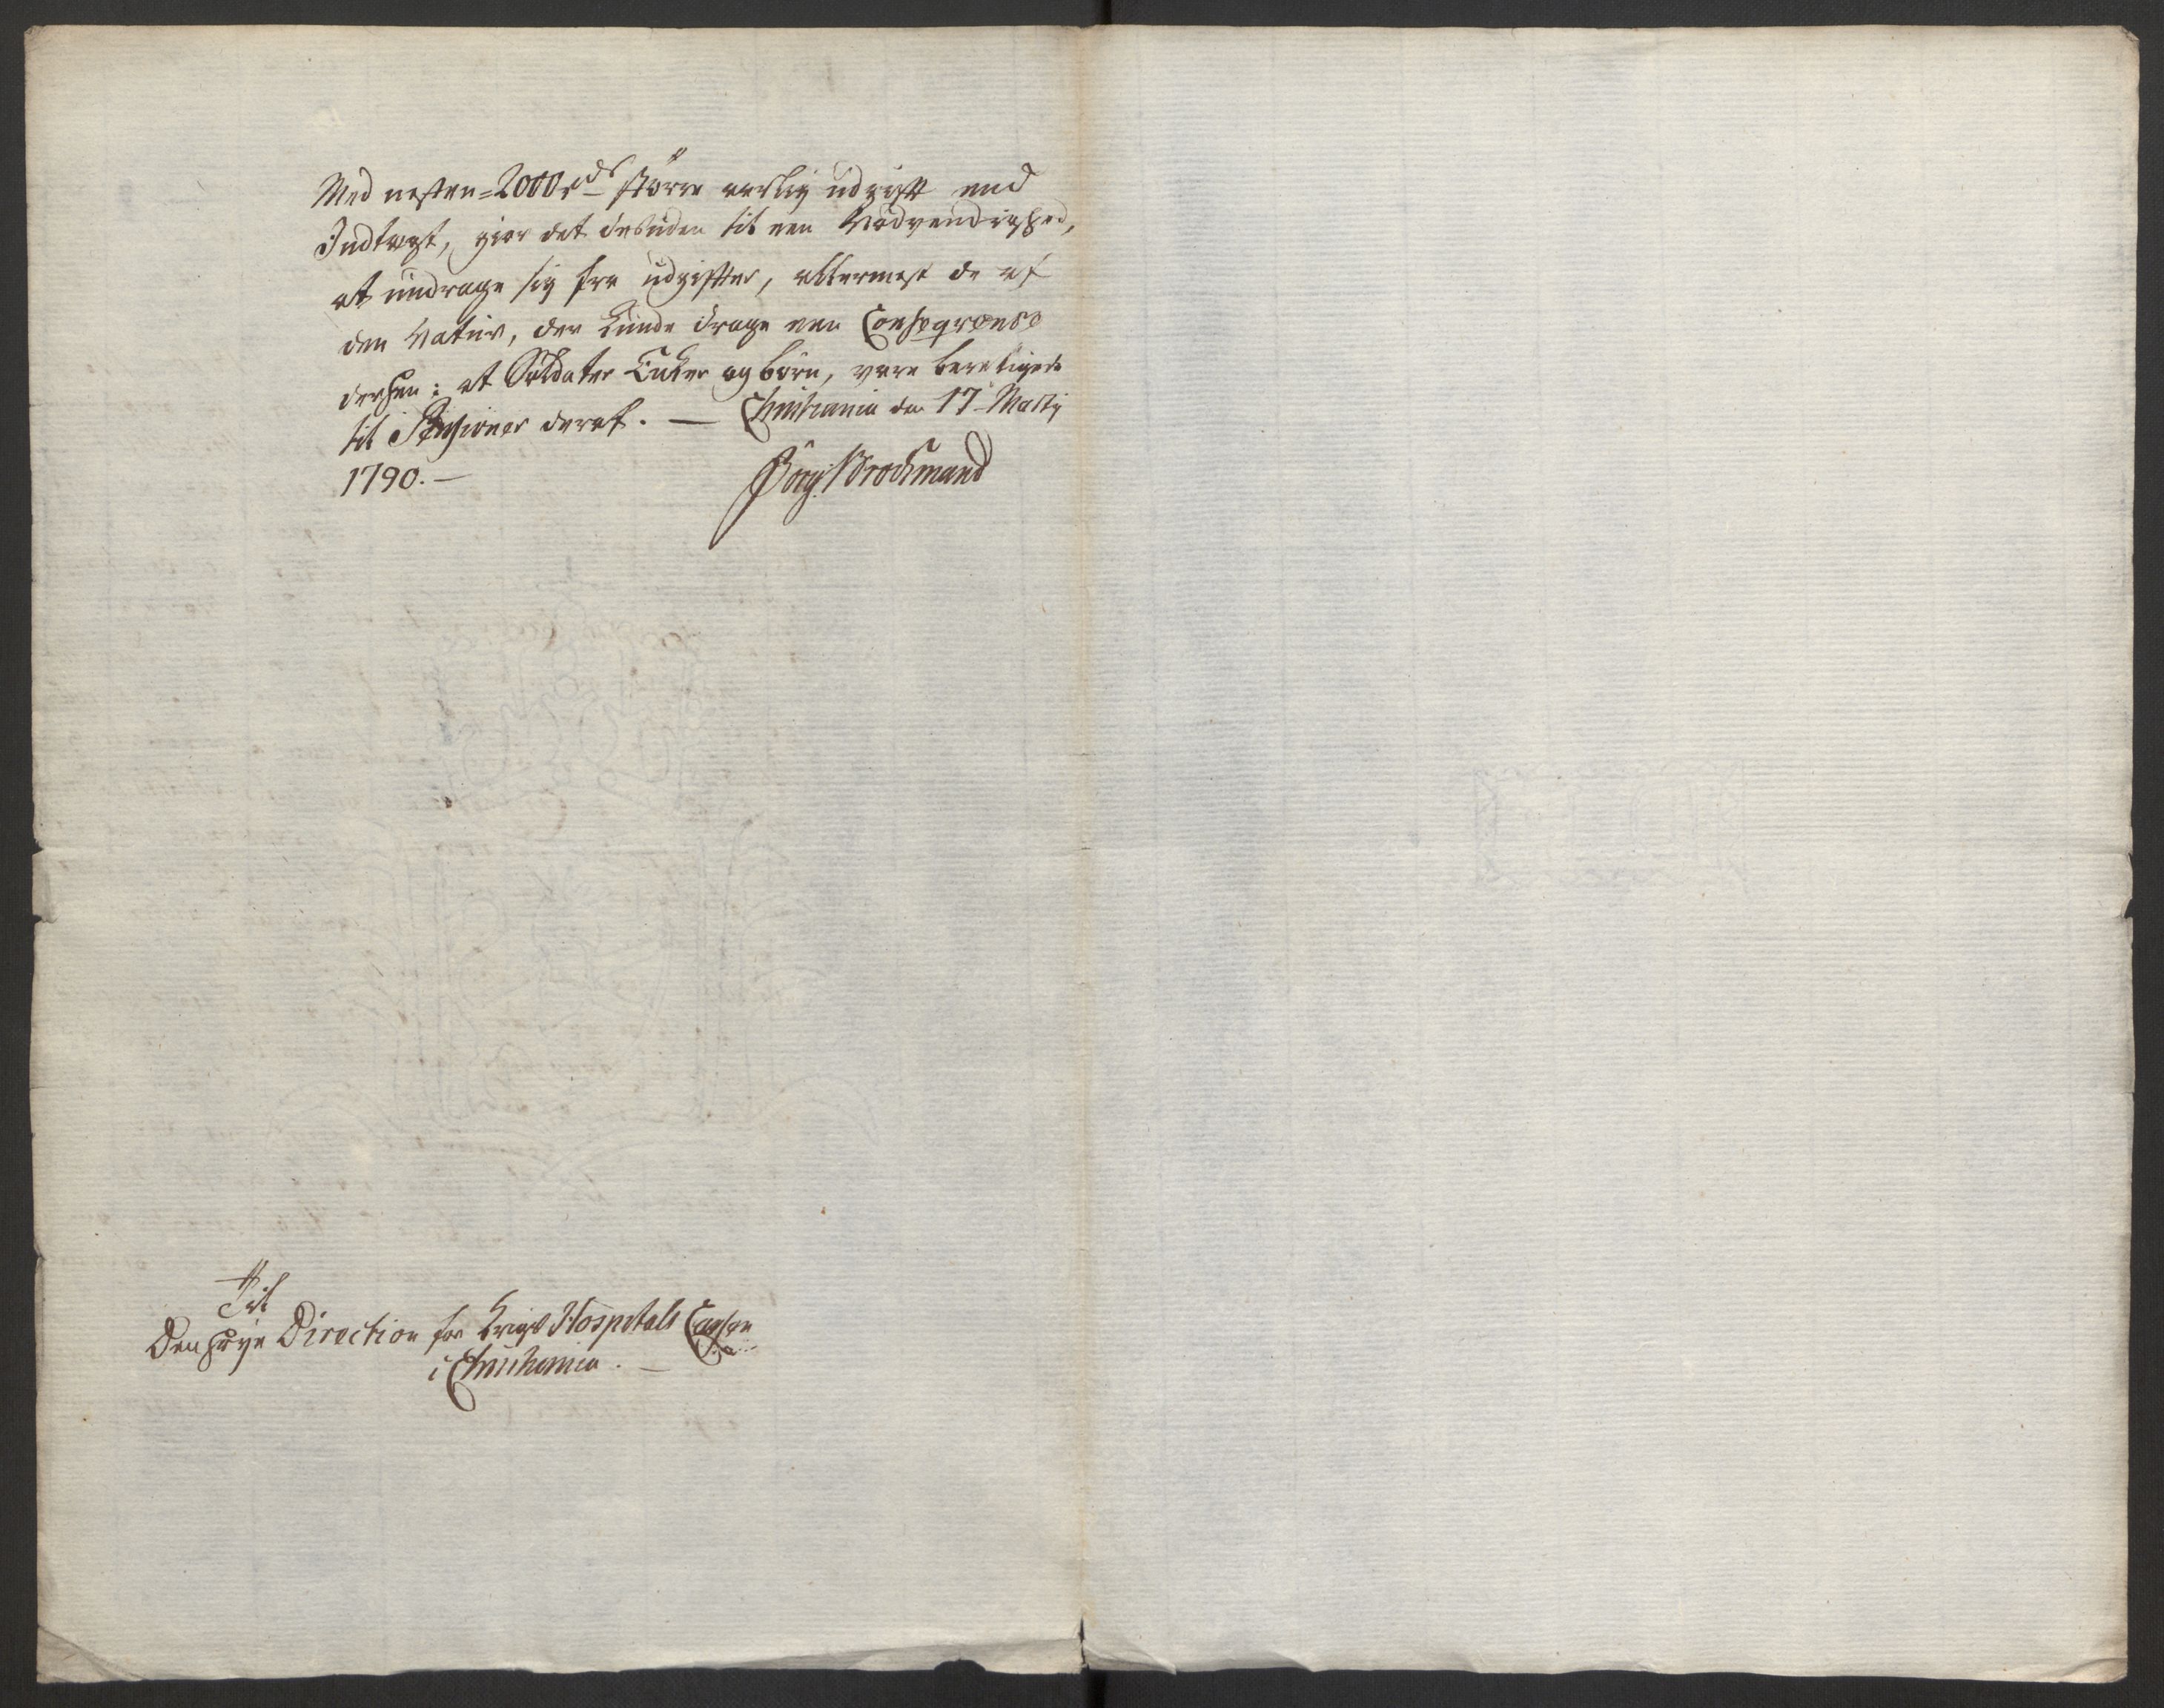 Med nesten = 2000 rdr større aarlig udgift end
Indtægt, giør det desuden til een Nødvendighed,
at unddrage sig fra udgifter, allermest de af
den Natur, der kunde drage een Conseqvense
derhen: at Soldater Enker og børn, vare berettigede
til Pensioner deraf. — Christiania den 17 Martij
1790. —
Brochmand
Til
Den høye Direction for Krigs Hospitals Cassen
i Christiania. —